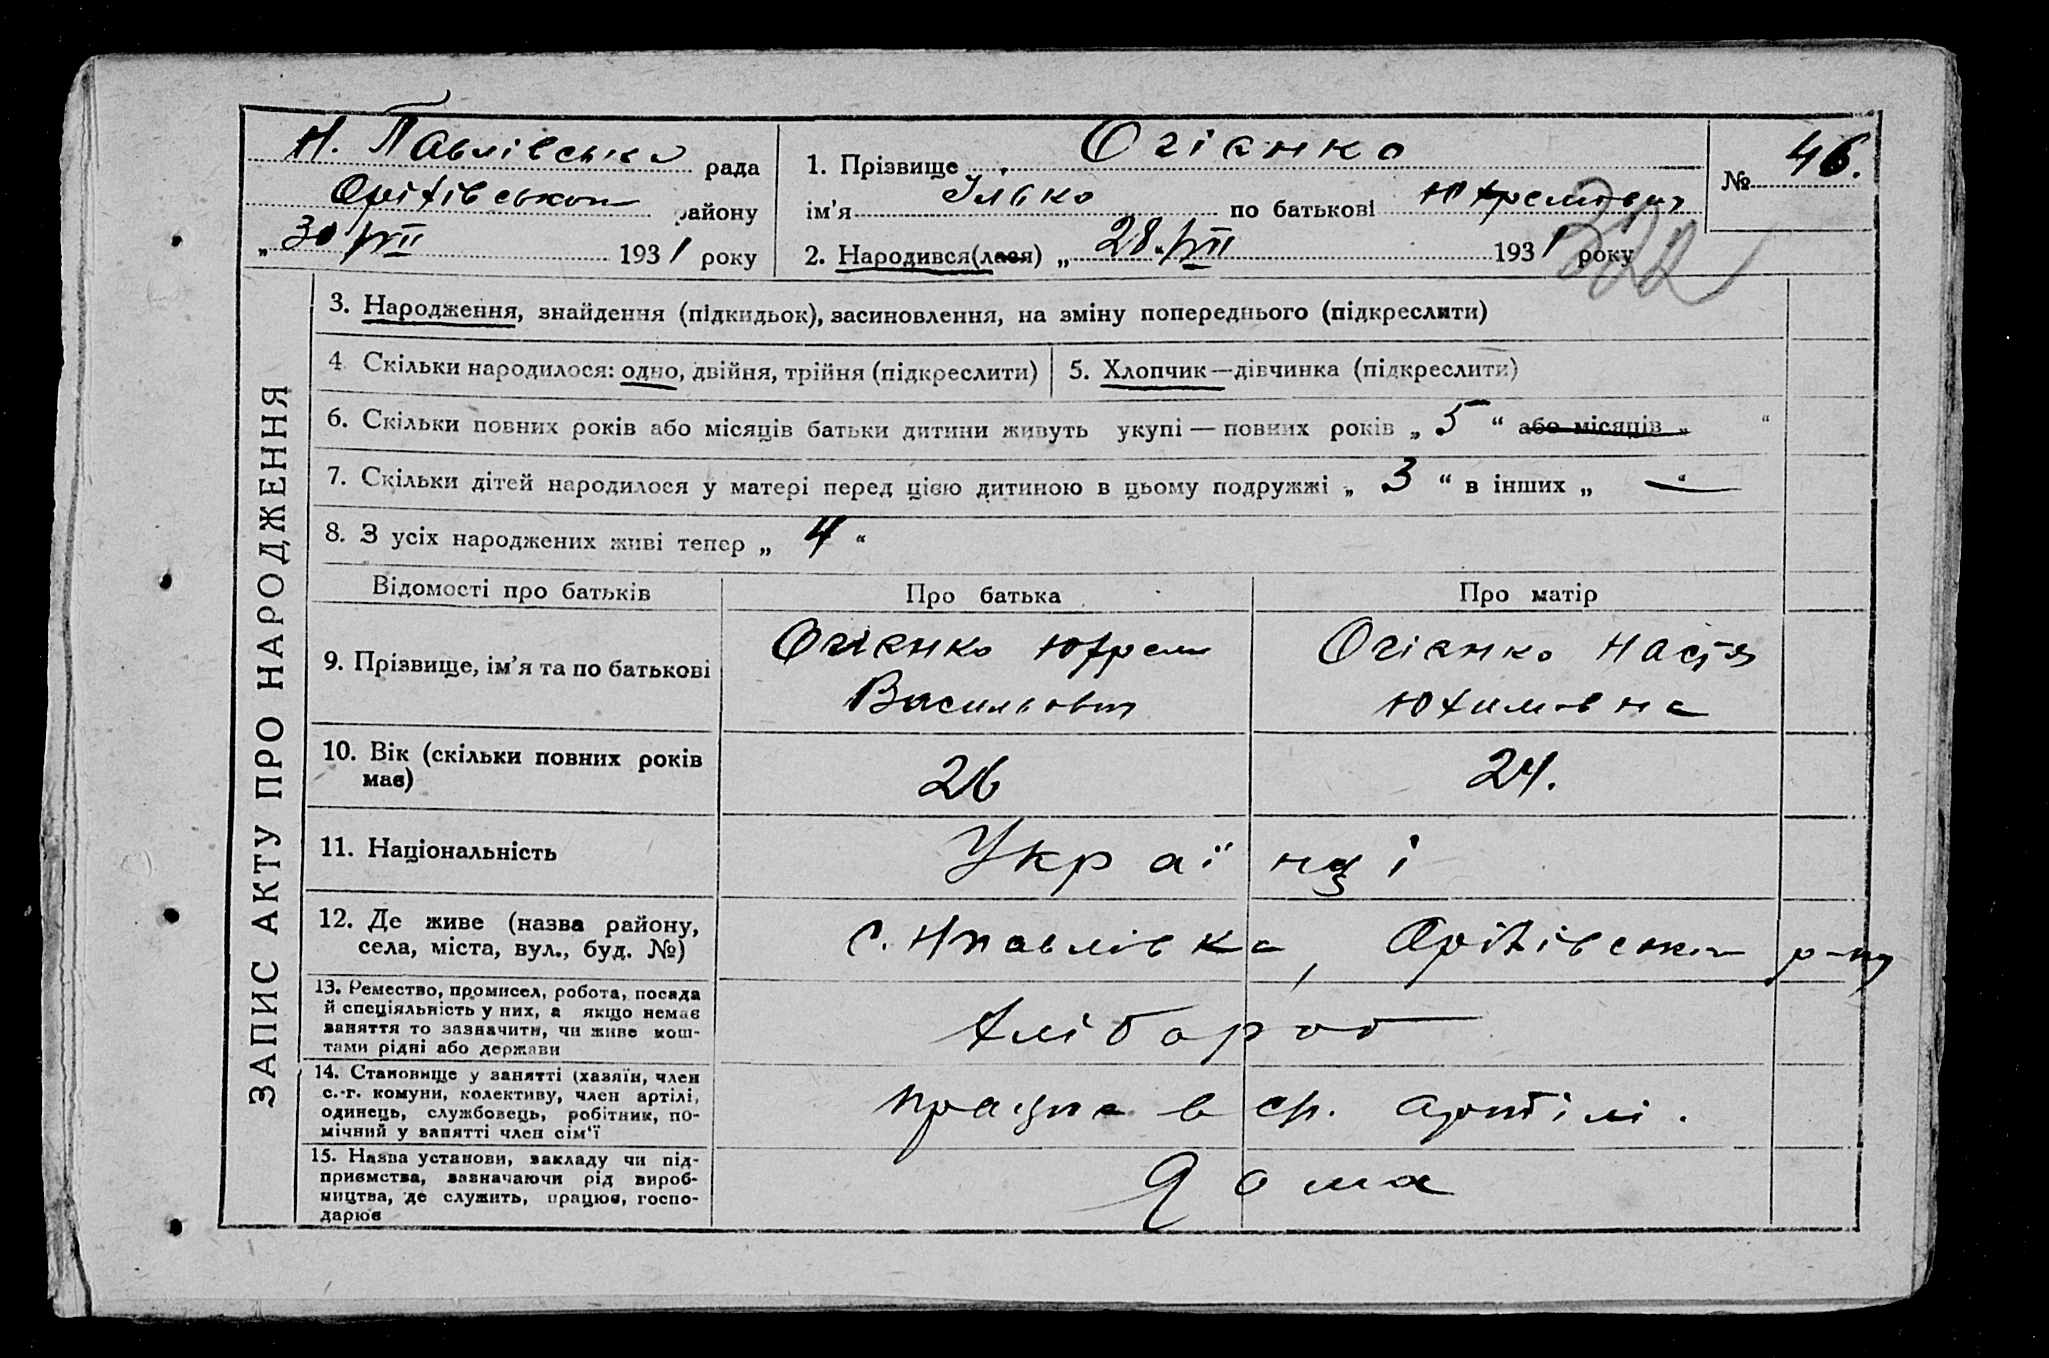 Н. Павлівська рада
Оріхівського району
„30/VII 1931 року
1. Прізвище Огієнко
ім’я Ілько по батькові Юхремович
2. Народився(лася) „28“/VII 1931 року
№ 46.
322
ЗАПИС АКТУ ПРО НАРОДЖЕННЯ
3. Народження, знайдення (підкидьок), засиновлення, на зміну попереднього (підкреслити)
4 Скільки народилося: одно, двійня, трійня (підкреслити)
5. Хлопчик—дівчинка (підкреслити)
6. Скільки повних років або місяців батьки дитини живуть укупі — повних років „ 5 “ або місяців „ “
7. Скільки дітей народилося у матері перед цією дитиною в цьому подружжі „ 3 “ в інших „ — “
8. З усіх народжених живі тепер „ 4 “
Відомості про батьків
Про батька
Про матір
9. Прізвище, ім’я та по батькові
Огієнко Юхрем
Васильович
Огієнко Настя
Юхимовна
10. Вік (скільки повних років
має)
26
24.
11. Національність
Українці
12. Де живе (назва району,
села, міста, вул., буд. №)
с. Нпавлівка, Оріхівськог р-ну
13. Ремество, промисел, робота, посада
й спеціяльність у них, а якщо немає
заняття то зазначити, чи живе кош-
тами рідні або держави
Хлібороб
14. Становище у занятті (хазяїн, член
с.-г. комуни, колективу, член артілі,
одинець, службовець, робітник, по-
мічний у занятті член сім’ї
праця в ср. артілі.
15. Назва установи, закладу чи під-
приємства, зазначаючи рід вироб-
ництва, де служить, працює, госпо-
дарює
Дома